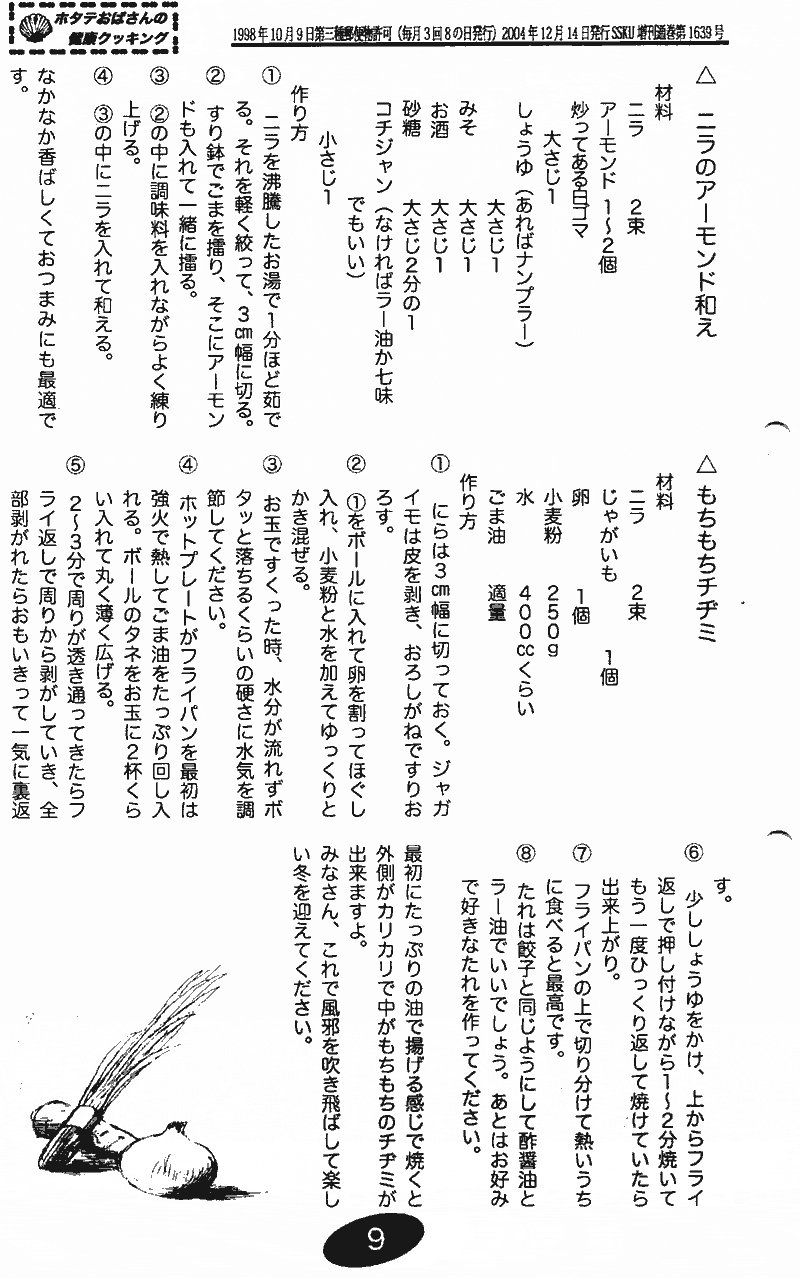 ホタテおばさんの
健康クッキング
1998年10月9日第三種郵便物許可（毎月3回8の日発行）2004年12月14日発行SSKU増刊通巻第1639号
△　ニラのアーモンド和え
材料
ニラ　　2束
アーモンド　1〜2個
炒ってある白ゴマ
大さじ1
しょうゆ（あればナンプラー）
大さじ1
みそ　　大さじ1
お酒　　大さじ1
砂糖　　大さじ2分の1
コチジャン（なければラー油か七味
でもいい）
小さじ1
作り方
①　ニラを沸騰したお湯で1分ほど茹で
る。それを軽く絞って、3㎝幅に切る。
②　すり鉢でごまを擂り、そこにアーモン
ドも入れて一緒に擂る。
③　②の中に調味料を入れながらよく練り
上げる。
④　③の中にニラを入れて和える。
なかなか香ばしくておつまみにも最適で
す。
△　もちもちチヂミ
材料
ニラ　　2束
じゃがいも　　1個
卵　　1個
小麦粉　　250g
水　　400ccくらい
ごま油　　適量
作り方
①　にらは3㎝幅に切っておく。ジャガ
イモは皮を剥き、おろしがねですりお
ろす。
②　①をボールに入れて卵を割ってほぐし
入れ、小麦粉と水を加えてゆっくりと
かき混ぜる。
③　お玉ですくった時、水分が流れずボ
タッと落ちるくらいの硬さに水気を調
節してください。
④　ホットプレートがフライパンを最初は
強火で熱してごま油をたっぷり回し入
れる。ボールのタネをお玉に2杯くら
い入れて丸く薄く広げる。
⑤　2〜3分で周りが透き通ってきたらフ
ライ返しで周りから剥がしていき、全
部剥がれたらおもいきって一気に裏返
す。
⑥　少ししょうゆをかけ、上からフライ
返しで押し付けながら1〜2分焼いて
もう一度ひっくり返して焼けていたら
出来上がり。
⑦　フライパンの上で切り分けて熱いうち
に食べると最高です。
⑧　たれは餃子と同じようにして酢醤油と
ラー油でいいでしょう。あとはお好み
で好きなたれを作ってください。
最初にたっぷりの油で揚げる感じで焼くと
外側がカリカリで中がもちもちのチヂミが
出来ますよ。
みなさん、これで風邪を吹き飛ばして楽し
い冬を迎えてください。
9